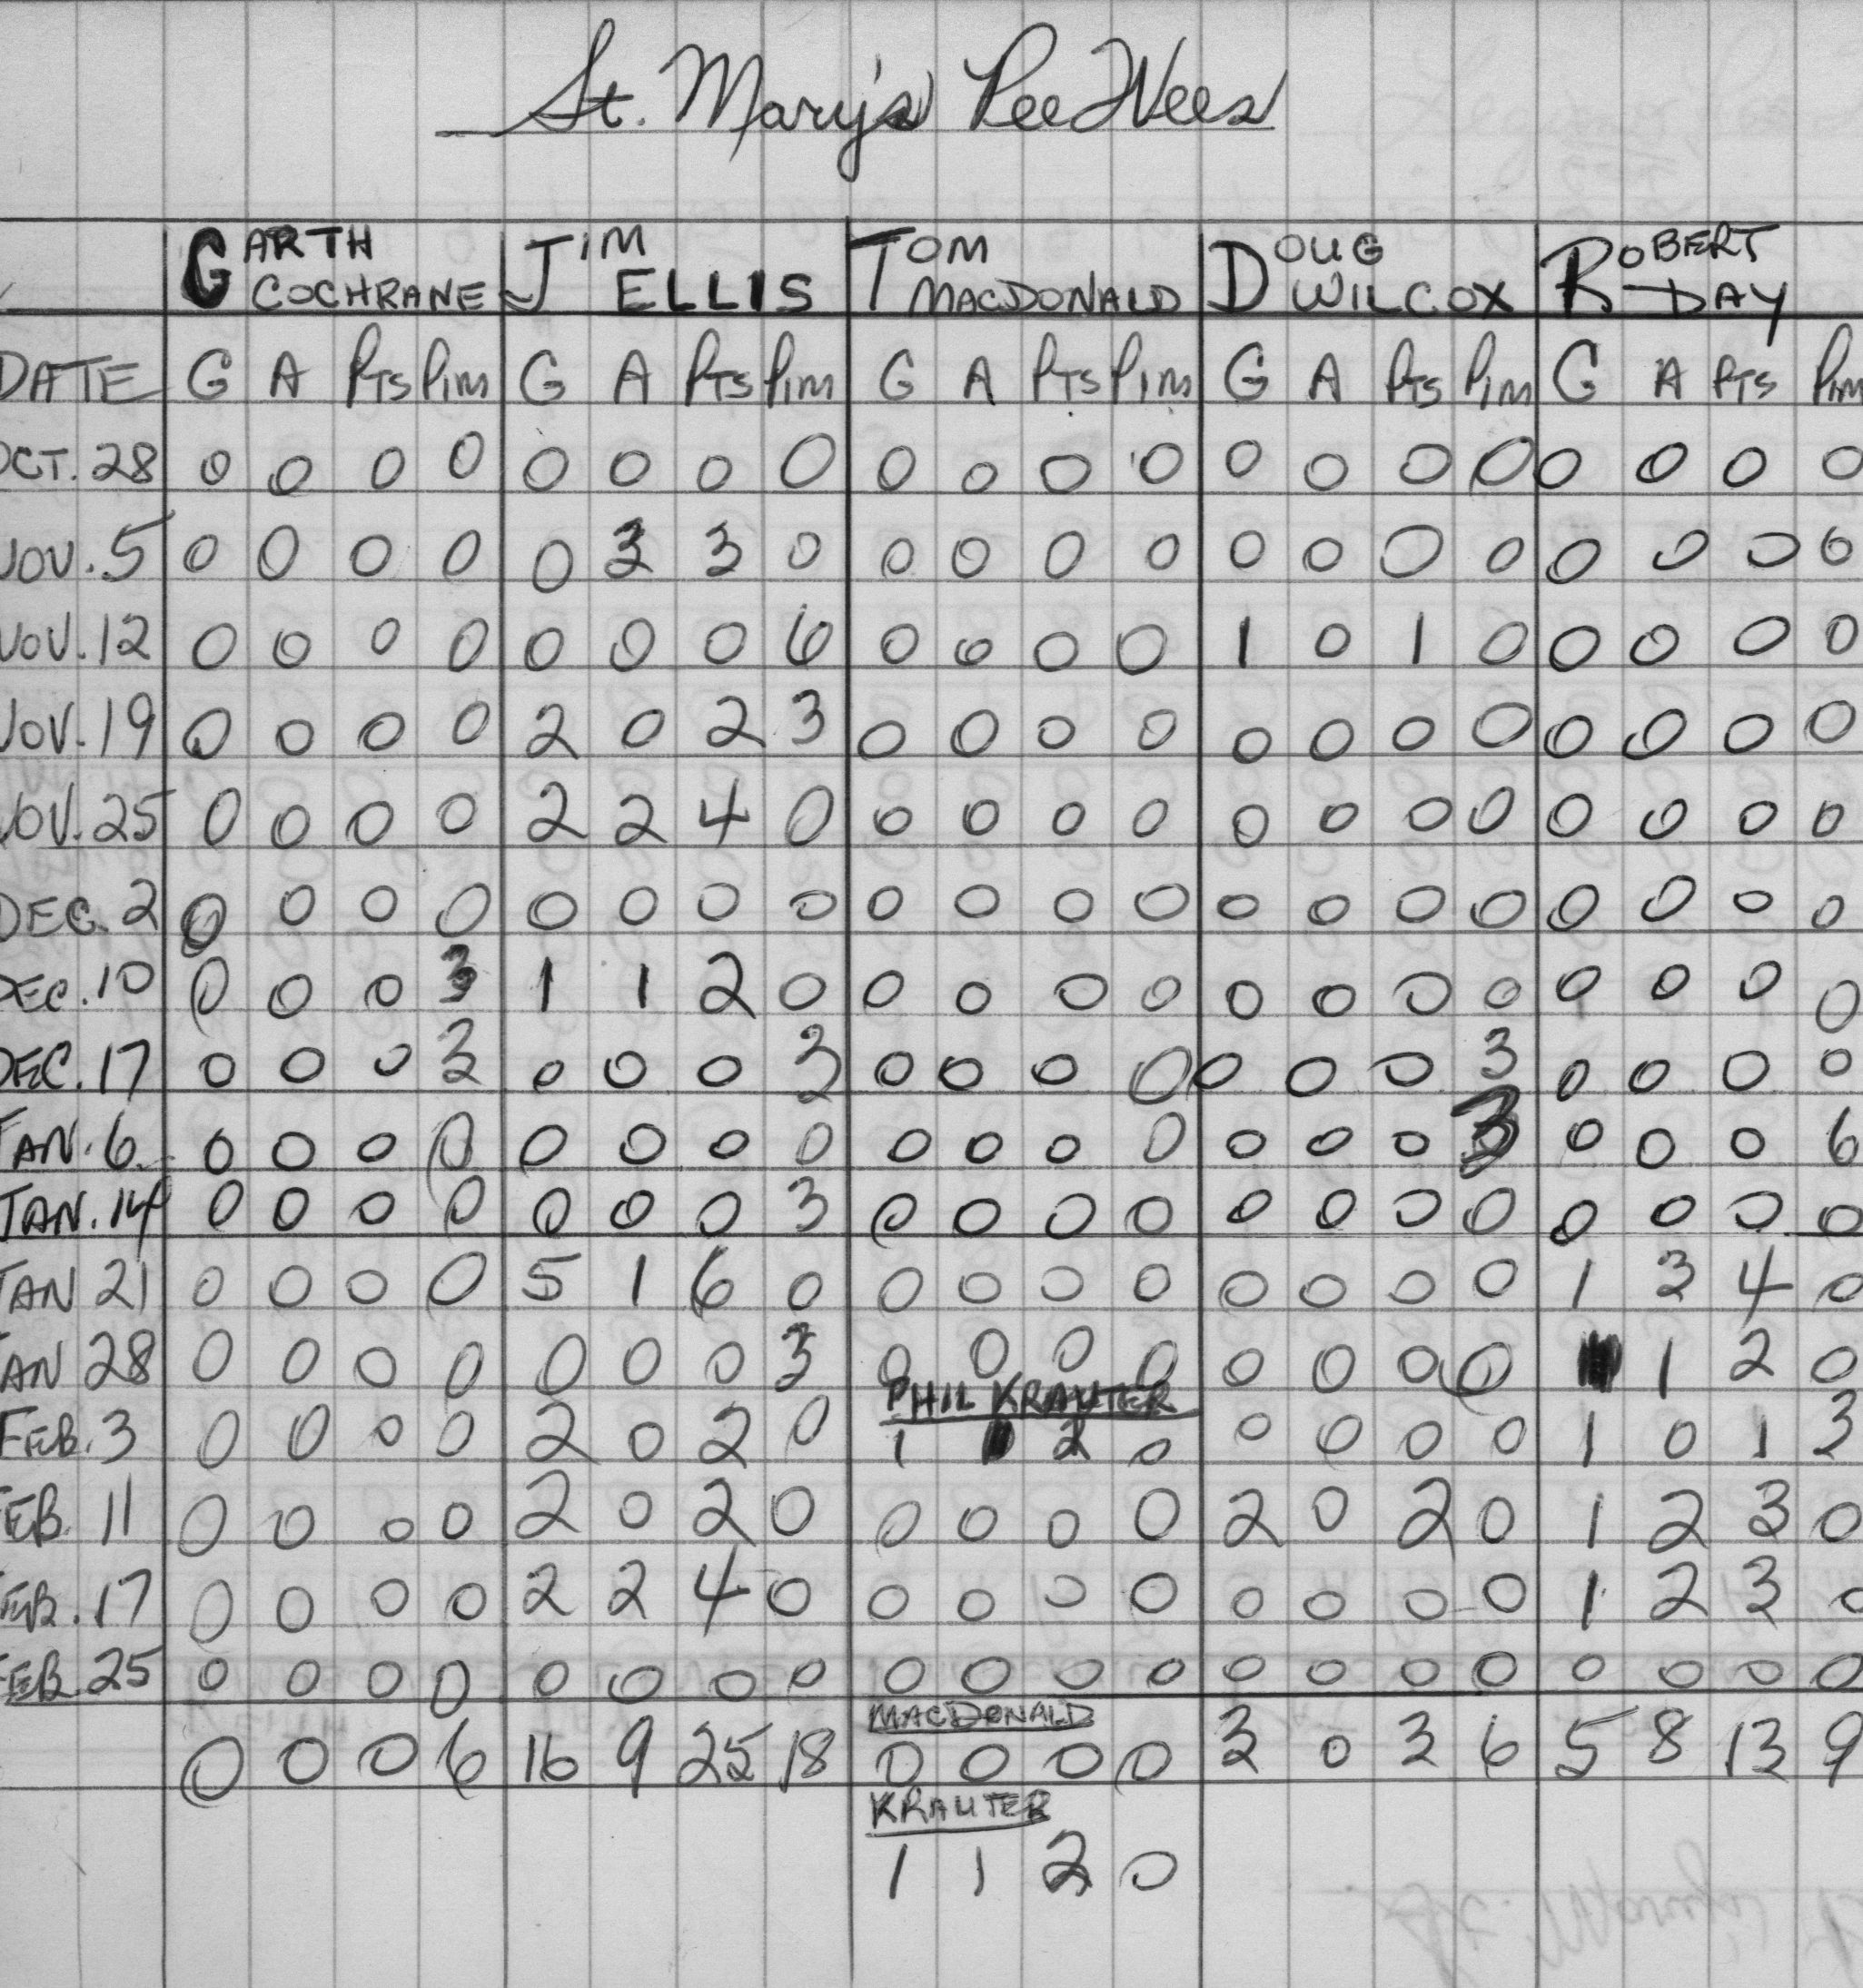 St. Mary's PeeWees
GARTH COCHRANE JIM ELLIS TOM MACDONALD DOUG WILCOX ROBERT DAY
DATE G A PTS PIM G A PTS PIM G A PTS PIM G A PTS PIM G A PTS PIM
OCT. 28 0 0 0 0 0 0 0 0 0 0 0 0 0 0 0 0 0 0 0 0
NOV. 5 0 0 0 0 0 3 3 0 0 0 0 0 0 0 0 0 0 0 0 0
NOV. 12 0 0 0 0 0 0 0 6 0 0 0 0 1 0 1 0 0 0 0 0
NOV. 19 0 0 0 0 2 0 2 3 0 0 0 0 0 0 0 0 0 0 0 0
NOV. 25 0 0 0 0 2 2 4 0 0 0 0 0 0 0 0 0 0 0 0 0
DEC. 2 0 0 0 0 0 0 0 0 0 0 0 0 0 0 0 0 0 0 0 0
DEC. 10 0 0 0 3 1 1 2 0 0 0 0 0 0 0 0 0 0 0 0 0
DEC. 17 0 0 0 3 0 0 0 3 0 0 0 0 0 0 0 3 0 0 0 0
JAN. 6 0 0 0 0 0 0 0 0 0 0 0 0 0 0 0 3 0 0 0 6
JAN. 14 0 0 0 0 0 0 0 3 0 0 0 0 0 0 0 0 0 0 0 0
JAN 21 0 0 0 0 5 1 6 0 0 0 0 0 0 0 0 0 1 3 4 0
JAN 28 0 0 0 0 0 0 0 3 0 0 0 0 0 0 0 0 1 2 0
PHIL KRAUTER
FEB. 3 0 0 0 0 2 0 2 0 1 2 0 0 0 0 0 1 0 1 3
FEB. 11 0 0 0 0 2 0 2 0 0 0 0 0 2 0 2 0 1 2 3 0
FEB. 17 0 0 0 0 2 2 4 0 0 0 0 0 0 0 0 0 1 2 3 0
FEB. 25 0 0 0 0 0 0 0 0 0 0 0 0 0 0 0 0 0 0 0 0
MACDONALD
0 0 0 6 16 9 25 18 0 0 0 0 3 0 3 6 5 8 13 9
KRAUTER
1 1 2 0